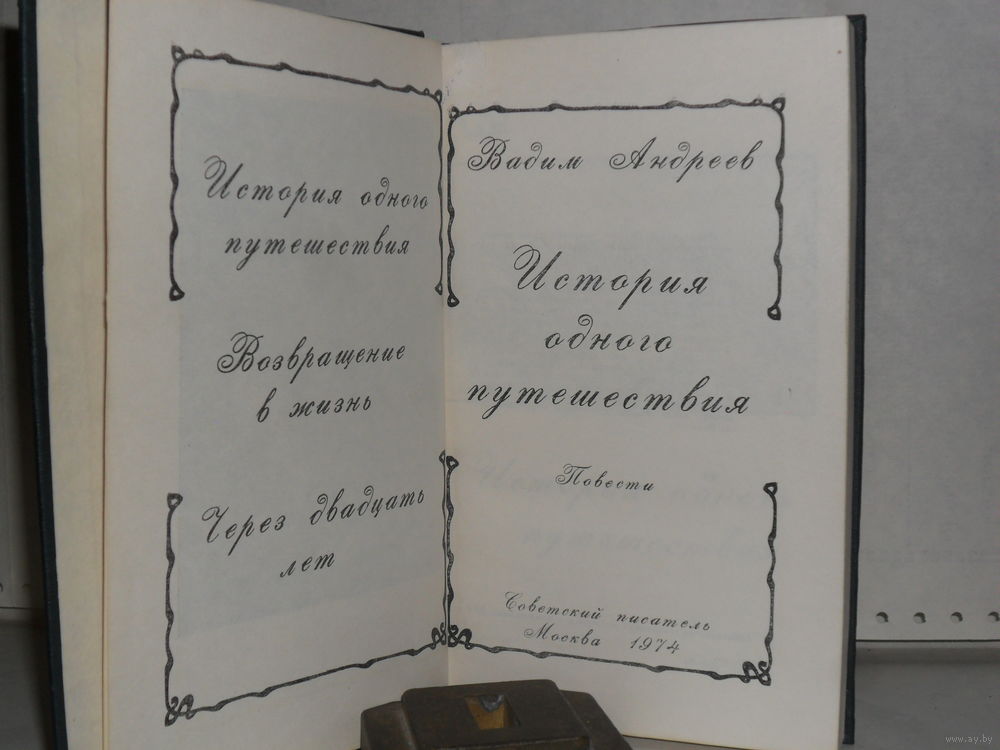 История одного
путешествия
Возвращение
в жизнь
Через двадцать
лет
Вадим Андреев
История
одного
путешествия
Повести
Советский писатель
Москва 1974
www.ay.by